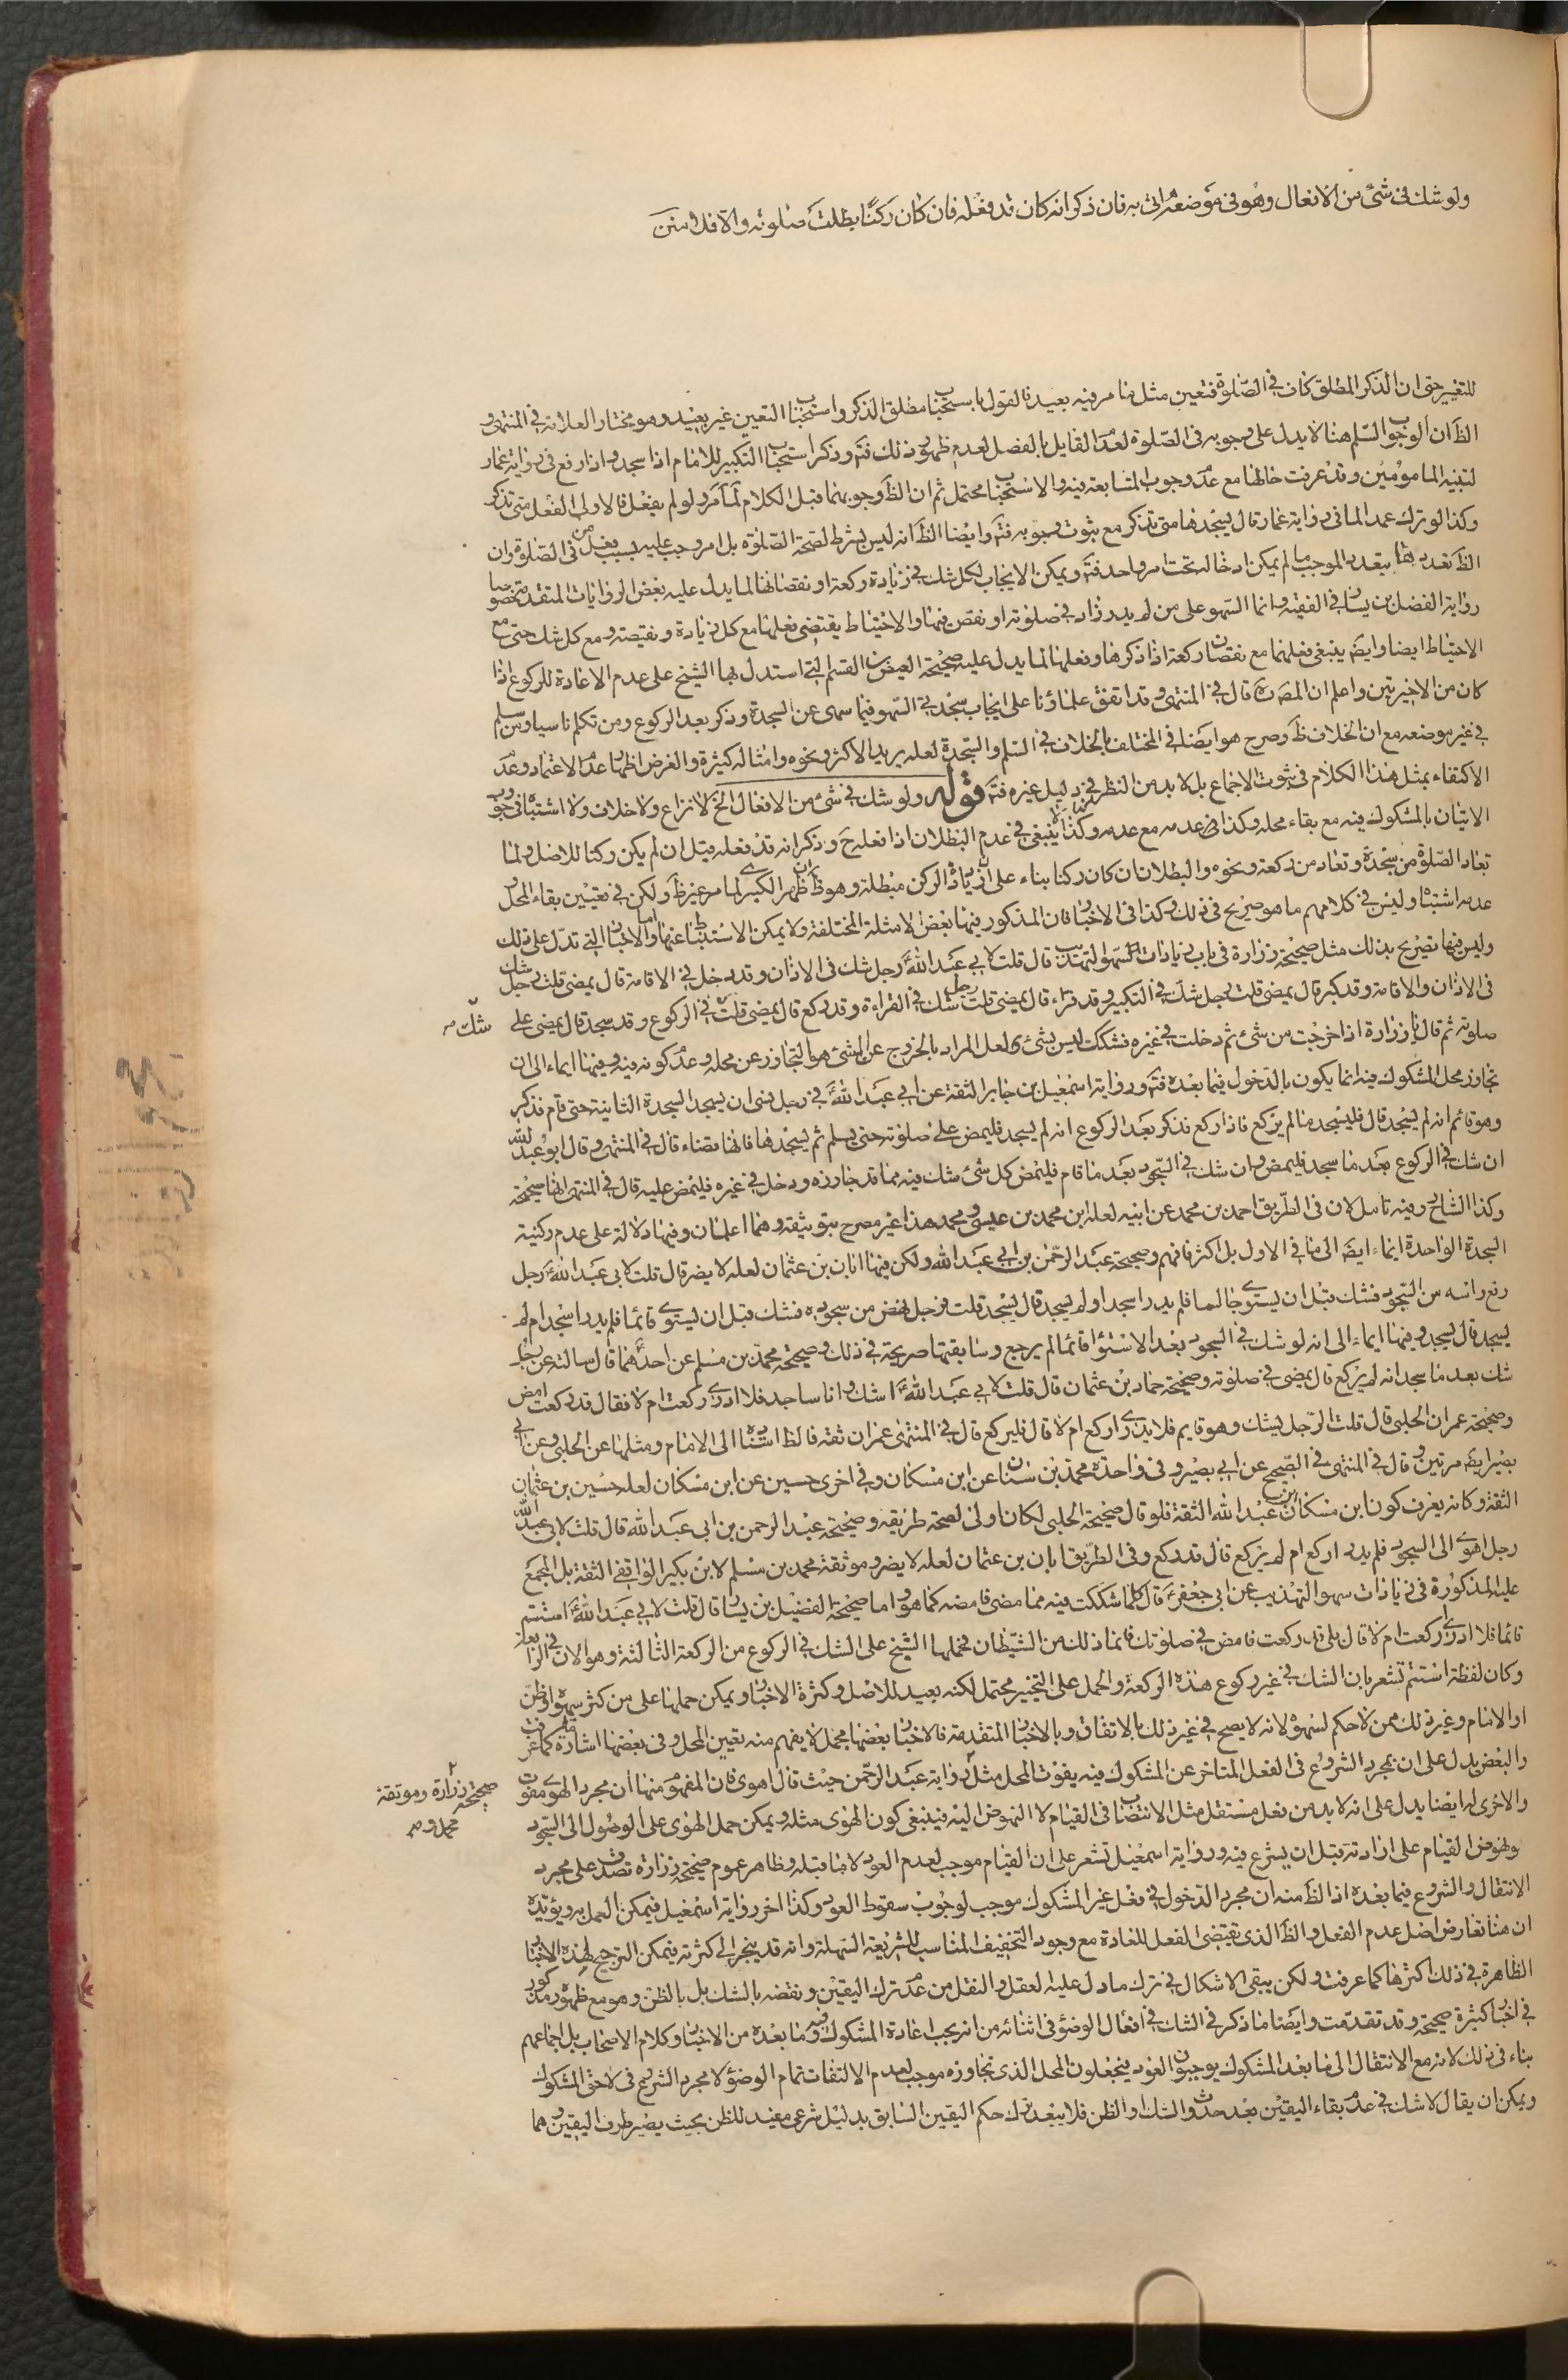 ولو شك فى شئ من الافعال وهو فى موضعه اتى به فان ذكر انه كان قد فعله فان كان ركنًا بطلت صلوته والا فلا
للتغيير حتى ان الذكر المطلق كاف فى الصّلوة فتعين مثل ما مر فيه بعيد فالقول باستحباب مطلق الذكر واستحباب التعيين غير بعيد وهو مختار العلامة فى المنتهى و
الظ ان الوجوب السلم هنا لا يدل على وجوبه فى الصّلوة لعدم القايل بالفصل لعدم ظهور ذلك فتم وذكر استحباب التكبير للامام اذا سجد واذا رفع فى رواية عمار
لتنبيه المامومين وقد عرفت حالها مع عدم وجوب المتابعة فيه والاستحباب محتمل ثم ان الظ وجوبهما قبل الكلام لما مر ولو لم يفعل فالاولى الفعل متى تذكر
وكذا لو ترك عمدا لما فى رواية عمار قال يسجدها متى تذكر مع ثبوت وجوبه فتم وايضا الظ انه ليس بشرط لصحة الصّلوة بل امر وجب عليه بسبب فعل فى الصّلوة وان
الظ تعددها بتعدد الموجب ما لم يمكن ادخاله تحت امر واحد فتم ويمكن الايجاب لكل شك فى زيادة ركعة او نقصانها لما يدل عليه بعض الروايات المتقدمة خصوصا
رواية الفضل بن يسار فى الفقيه وانما السهو على من لم يدر زاد فى صلوته او نقص منها والاحتياط يقتضى فعلهما مع كل زيادة ونقيصة ومع كل شك حتى مع
الاحتياط ايضا وايضا ينبغى فعلهما مع نقصان ركعة اذا ذكرها وفعلها لما يدل عليه صحيحة العيص بن القسم التى استدل بها الشيخ على عدم الاعادة للركوع اذا
كان من الاخيرتين واعلم ان المص ره قال فى المنتهى وقد اتفق علماؤنا على ايجاب سجدتى السهو فيما سهى عن السجدة وذكر بعد الركوع ومن تكلم ناسيا ومن سلم
فى غير موضعه مع ان الخلاف ظ وصرح هو ايضا فى المختلف بالخلاف فى السلم والسجدة لعله يريد الاكثر ونحوه وامثاله كثيرة والغرض اظهار عدم الاعتماد وعدم
الاكتفاء بمثل هذا الكلام فى ثبوت الاجماع بل لا بد من النظر فى دليل غيره فتم قوله ولو شك فى شئ من الافعال الخ لا نزاع ولا خلاف ولا اشتباه فى وجوب
الاتيان بالمشكوك فيه مع بقاء محله وكذا فى عدمه مع عدمه وكذا لا ينبغى فى عدم البطلان اذا فعله ح وذكر انه قد فعله قبل ان لم يكن ركنا للاصل ولما
تعاد الصّلوة من سجدة وتعاد من ركعة ونحوه والبطلان ان كان ركنا بناء على ان زيادة الركن مبطلة وهو ظ ان ظهر الكبرى لما مر غير ظ ولكن فى تعيين بقاء المحل و
عدمه اشتباه وليس فى كلامهم ما هو صريح فى ذلك وكذا فى الاخبار فان المذكور فيها بعض الامثلة المختلفة ولا يمكن الاستنباط عنها واما الاخبار التى تدل على ذلك
وليس فيها تصريح بذلك مثل صحيحة زرارة فى باب زيادات السهو التهذيب قال قلت لابى عبد الله ع رجل شك فى الاذان وقد دخل فى الاقامة قال يمضى قلت رجل شك
فى الاذان والاقامة وقد كبر قال يمضى قلت رجل شك فى التكبير وقد قراء قال يمضى قلت رجل شك فى القراءة وقد ركع قال يمضى قلت فى الركوع وقد سجد قال يمضى على
شك صه
صلوته ثم قال يا زرارة اذا خرجت من شئ ثم دخلت فى غيره فشكك ليس بشئ ولعل المراد بالخروج عن الشئ هو التجاوز عن محله وعدم كونه فيه وفيها ايماء الى ان
تجاوز محل المشكوك فيه انما يكون بالدخول فيما بعده فتم ورواية اسمعيل بن جابر الثقة عن ابى عبد الله ع فى رجل نسى ان يسجد السجدة الثانية حتى قام فذكر
وهو قائم انه لم يسجد قال فليسجد ما لم يركع فاذا ركع فذكر بعد الركوع انه لم يسجد فليمض على صلوته حتى يسلم ثم يسجدها فانها قضاء قال فى المنتهى وقال ابو عبد الله
ان شك فى الركوع بعد ما سجد فليمض وان شك فى السجود بعد ما قام فليمض كل شئ شك فيه مما قد جاوزه ودخل فى غيره فليمض عليه قال فى المنتهى انها صحيحة
وكذا الشارح وفيه تامل لان فى الطريق احمد بن محمد عن ابيه لعله ابن محمد بن عيسى ومحمد هذا غير مصرح بتوثيقه وهما اعلمان وفيها دلالة على عدم ركنية
السجدة الواحدة ايماء ايضا الى ما فى الاول بل اكثر فافهم وصحيحة عبد الرحمن بن ابى عبد الله ولكن فيها ابان بن عثمان لعله لا يضر قال قلت لابى عبد الله ع رجل
رفع راسه من السجود فشك قبل ان يستوى جالسا فلم يدر اسجد او لم يسجد قال يسجد قلت فرجل نهض من سجوده فشك قبل ان يستوى قائما فلم يدر اسجد ام لم
يسجد قال يسجد وفيها ايماء الى انه لو شك فى السجود بعد الاستواء قائما لم يرجع وسابقتها صريحة فى ذلك وصحيحة محمد بن مسلم عن احدهما قال سالته عن رجل
شك بعد ما سجد انه لم يركع قال يمضى فى صلوته وصحيحة حماد بن عثمان قال قلت لابى عبد الله ع اشك وانا ساجد فلا ادرى ركعت ام لا فقال قد ركعت امض
وصحيحة عمران الحلبى قال قلت الرجل يشك وهو قايم فلا يدرى اركع ام لا قال فليركع قال فى المنتهى عمران ثقة فالظ اسناده الى الامام ومثلها عن الحلبى وعن ابى
بصير ايضا مرتين وقال فى المنتهى فى الصحيح عن ابى بصير وفى واحدة محمد بن سنان عن ابن مسكان وفى اخرى حسين عن ابن مسكان لعله حسين بن عثمان
الثقة وكانه يعرف كون ابن مسكان عبد الله الثقة فلو قال صحيحة الحلبى لكان اولى لصحة طريقه وصحيحة عبد الرحمن بن ابى عبد الله قال قلت لابى عبد الله
رجل اهوى الى السجود فلم يدر اركع ام لم يركع قال قد ركع وفى الطريق ابان بن عثمان لعله لا يضر وموثقة محمد بن مسلم لابن بكير الواقفى الثقة بل المجمع
عليه المذكورة فى زيادات سهو التهذيب عن ابى جعفر ع قال كلما شككت فيه مما مضى فامضه كما هو واما صحيحة الفضيل بن يسار قال قلت لابى عبد الله ع استتم
قائما فلا ادرى ركعت ام لا قال بلى قد ركعت فامض فى صلوتك فانما ذلك من الشيطان فحملها الشيخ على الشك فى الركوع من الركعة الثالثة وهو الان فى الرابعة
وكان لفظة استتم تشعر بان الشك فى غير ركوع هذه الركعة والحمل على التخيير محتمل لكنه بعيد للاصل وكثرة الاخبار ويمكن حملها على من كثر سهوه او ظن
او الامام وغير ذلك ممن لا حكم لسهوه لانه لا يصح فى غير ذلك بالاتفاق وبالاخبار المتقدمة فالاخبار بعضها مجمل لا يفهم منه تعيين المحل وفى بعضها اشارة ما كما عرفت
والبعض يدل على ان بمجرد الشروع فى الفعل المتاخر عن المشكوك فيه يفوت المحل مثل رواية عبد الرحمن حيث قال اهوى فان المفهوم منها ان مجرد الهوى مفوت
صحيحة زرارة وموثقة
محمد و صه
والاخرى له ايضا يدل على انه لا بد من فعل مستقل مثل الانتصاب فى القيام لا النهوض اليه فينبغى كون الهوى مثله ويمكن حمل الهوى على الوصول الى السجود
ونهوض القيام على ارادته قبل ان يشرع فيه ورواية اسمعيل تشعر على ان القيام موجب لعدم العود لا ما قبله وظاهر عموم صحيحة زرارة تصدق على مجرد
الانتقال والشروع فيما بعده اذ الظ منه ان مجرد الدخول فى فعل غير المشكوك موجب لوجوب سقوط العود وكذا اخر رواية اسمعيل فيمكن العمل به ويؤيده
ان هنا تعارض اصل عدم الفعل والظ الذى يقتضى الفعل للعادة مع وجود التخفيف المناسب للشريعة السهلة وانه قد ينجر الى كثرته فيمكن الترجيح لهذه الاخبار
الظاهرة فى ذلك اكثرها كما عرفت ولكن يبقى الاشكال فى ترك ما دل عليه العقل والنقل من عدم ترك اليقين ونقضه بالشك بل بالظن وهو مع ظهوره مذكور
فى اخبار كثيرة صحيحة وقد تقدمت وايضا ما ذكر فى الشك فى افعال الوضوء فى اثنائه من انه يجب اعادة المشكوك فيه وما بعده من الاخبار وكلام الاصحاب بل اجماعهم
بناء فى ذلك لانه مع الانتقال الى ما بعد المشكوك يوجبون العود فيجعلون المحل الذى تجاوزه موجب لعدم الالتفات تمام الوضوء لا مجرد الشروع فى لاحق المشكوك
ويمكن ان يقال لا شك فى عدم بقاء اليقين بعد حدوث الشك او الظن فلا يبعد ترك حكم اليقين السابق بدليل شرعى مفيد للظن بحيث يصير طرف اليقين وهما